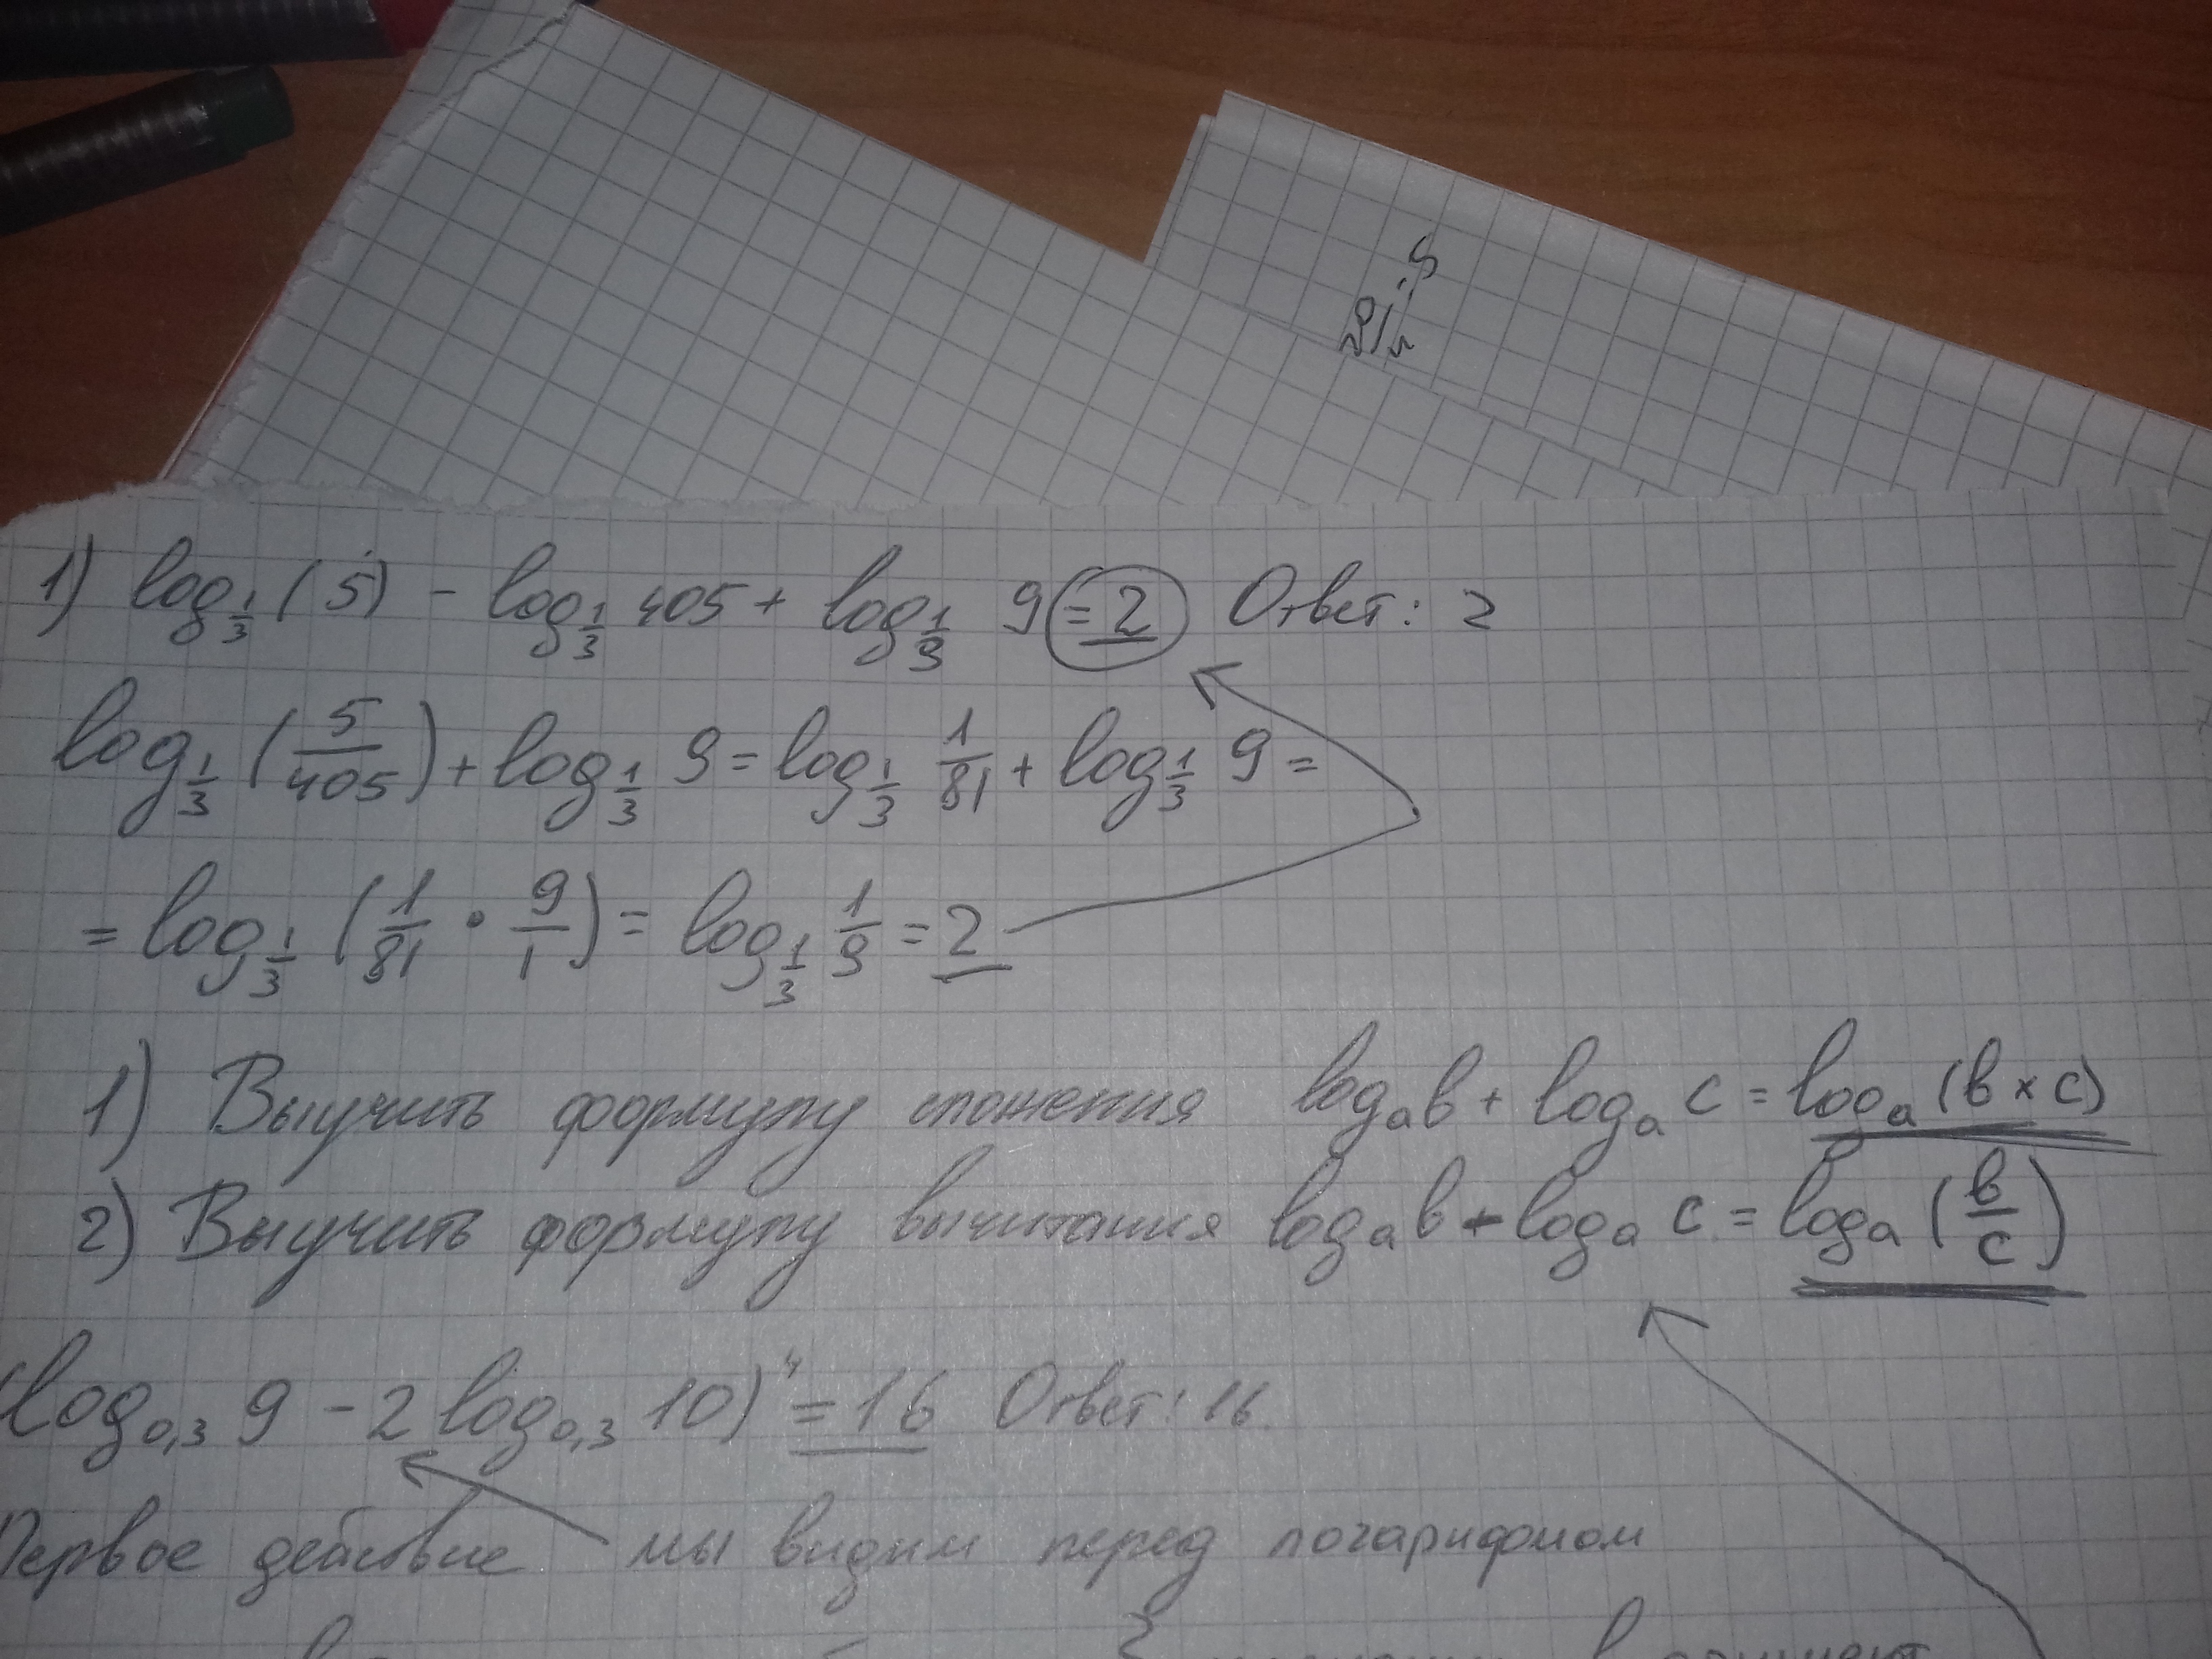 1) log_{1/3} (5) - log_{1/3} 405 + log_{1/3} 9 = 2 Ответ: 2
log_{1/3} (5/405) + log_{1/3} 9 = log_{1/3} 1/81 + log_{1/3} 9 =
= log_{1/3} (1/81 · 9/1) = log_{1/3} 1/9 = 2
1) Выучить формулу сложения log_a b + log_a c = log_a (b × c)
2) Выучить формулу вычитания log_a b - log_a c = log_a (b/c)
(log_{0,3} 9 - 2 log_{0,3} 10)^4 = 16 Ответ: 16.
Первое действие мы видим перед логарифмом